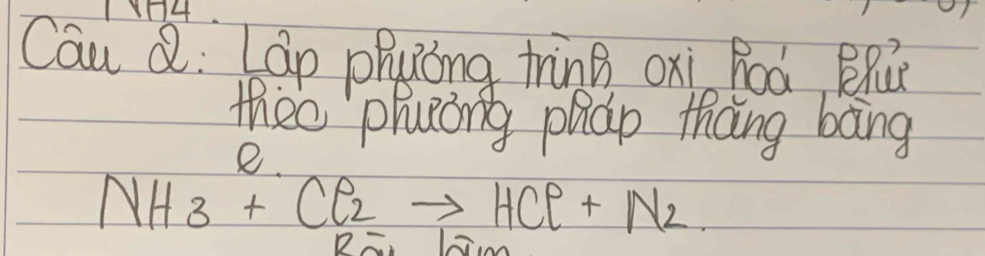 NH4.
Câu 2: Lập phương trình oxi hoá khử
theo phương pháp thăng bằng
e.
NH3 + Cl2 → HCl + N2.
Bài làm